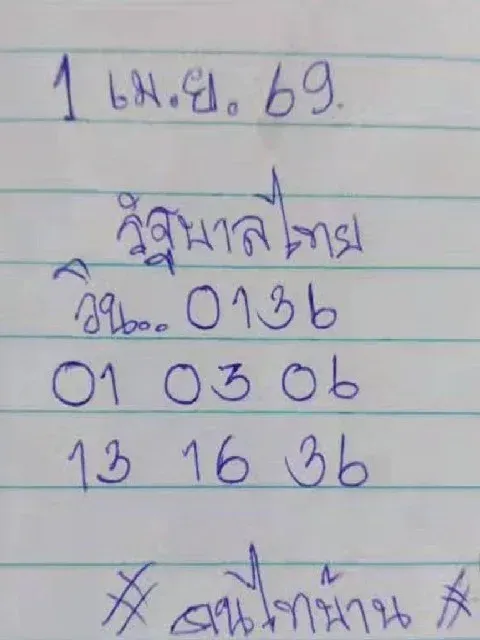 1 เม.ย. 69.
รัฐบาลไทย
วิน.. 0136
01 03 06
13 16 36
# คนไทบ้าน #